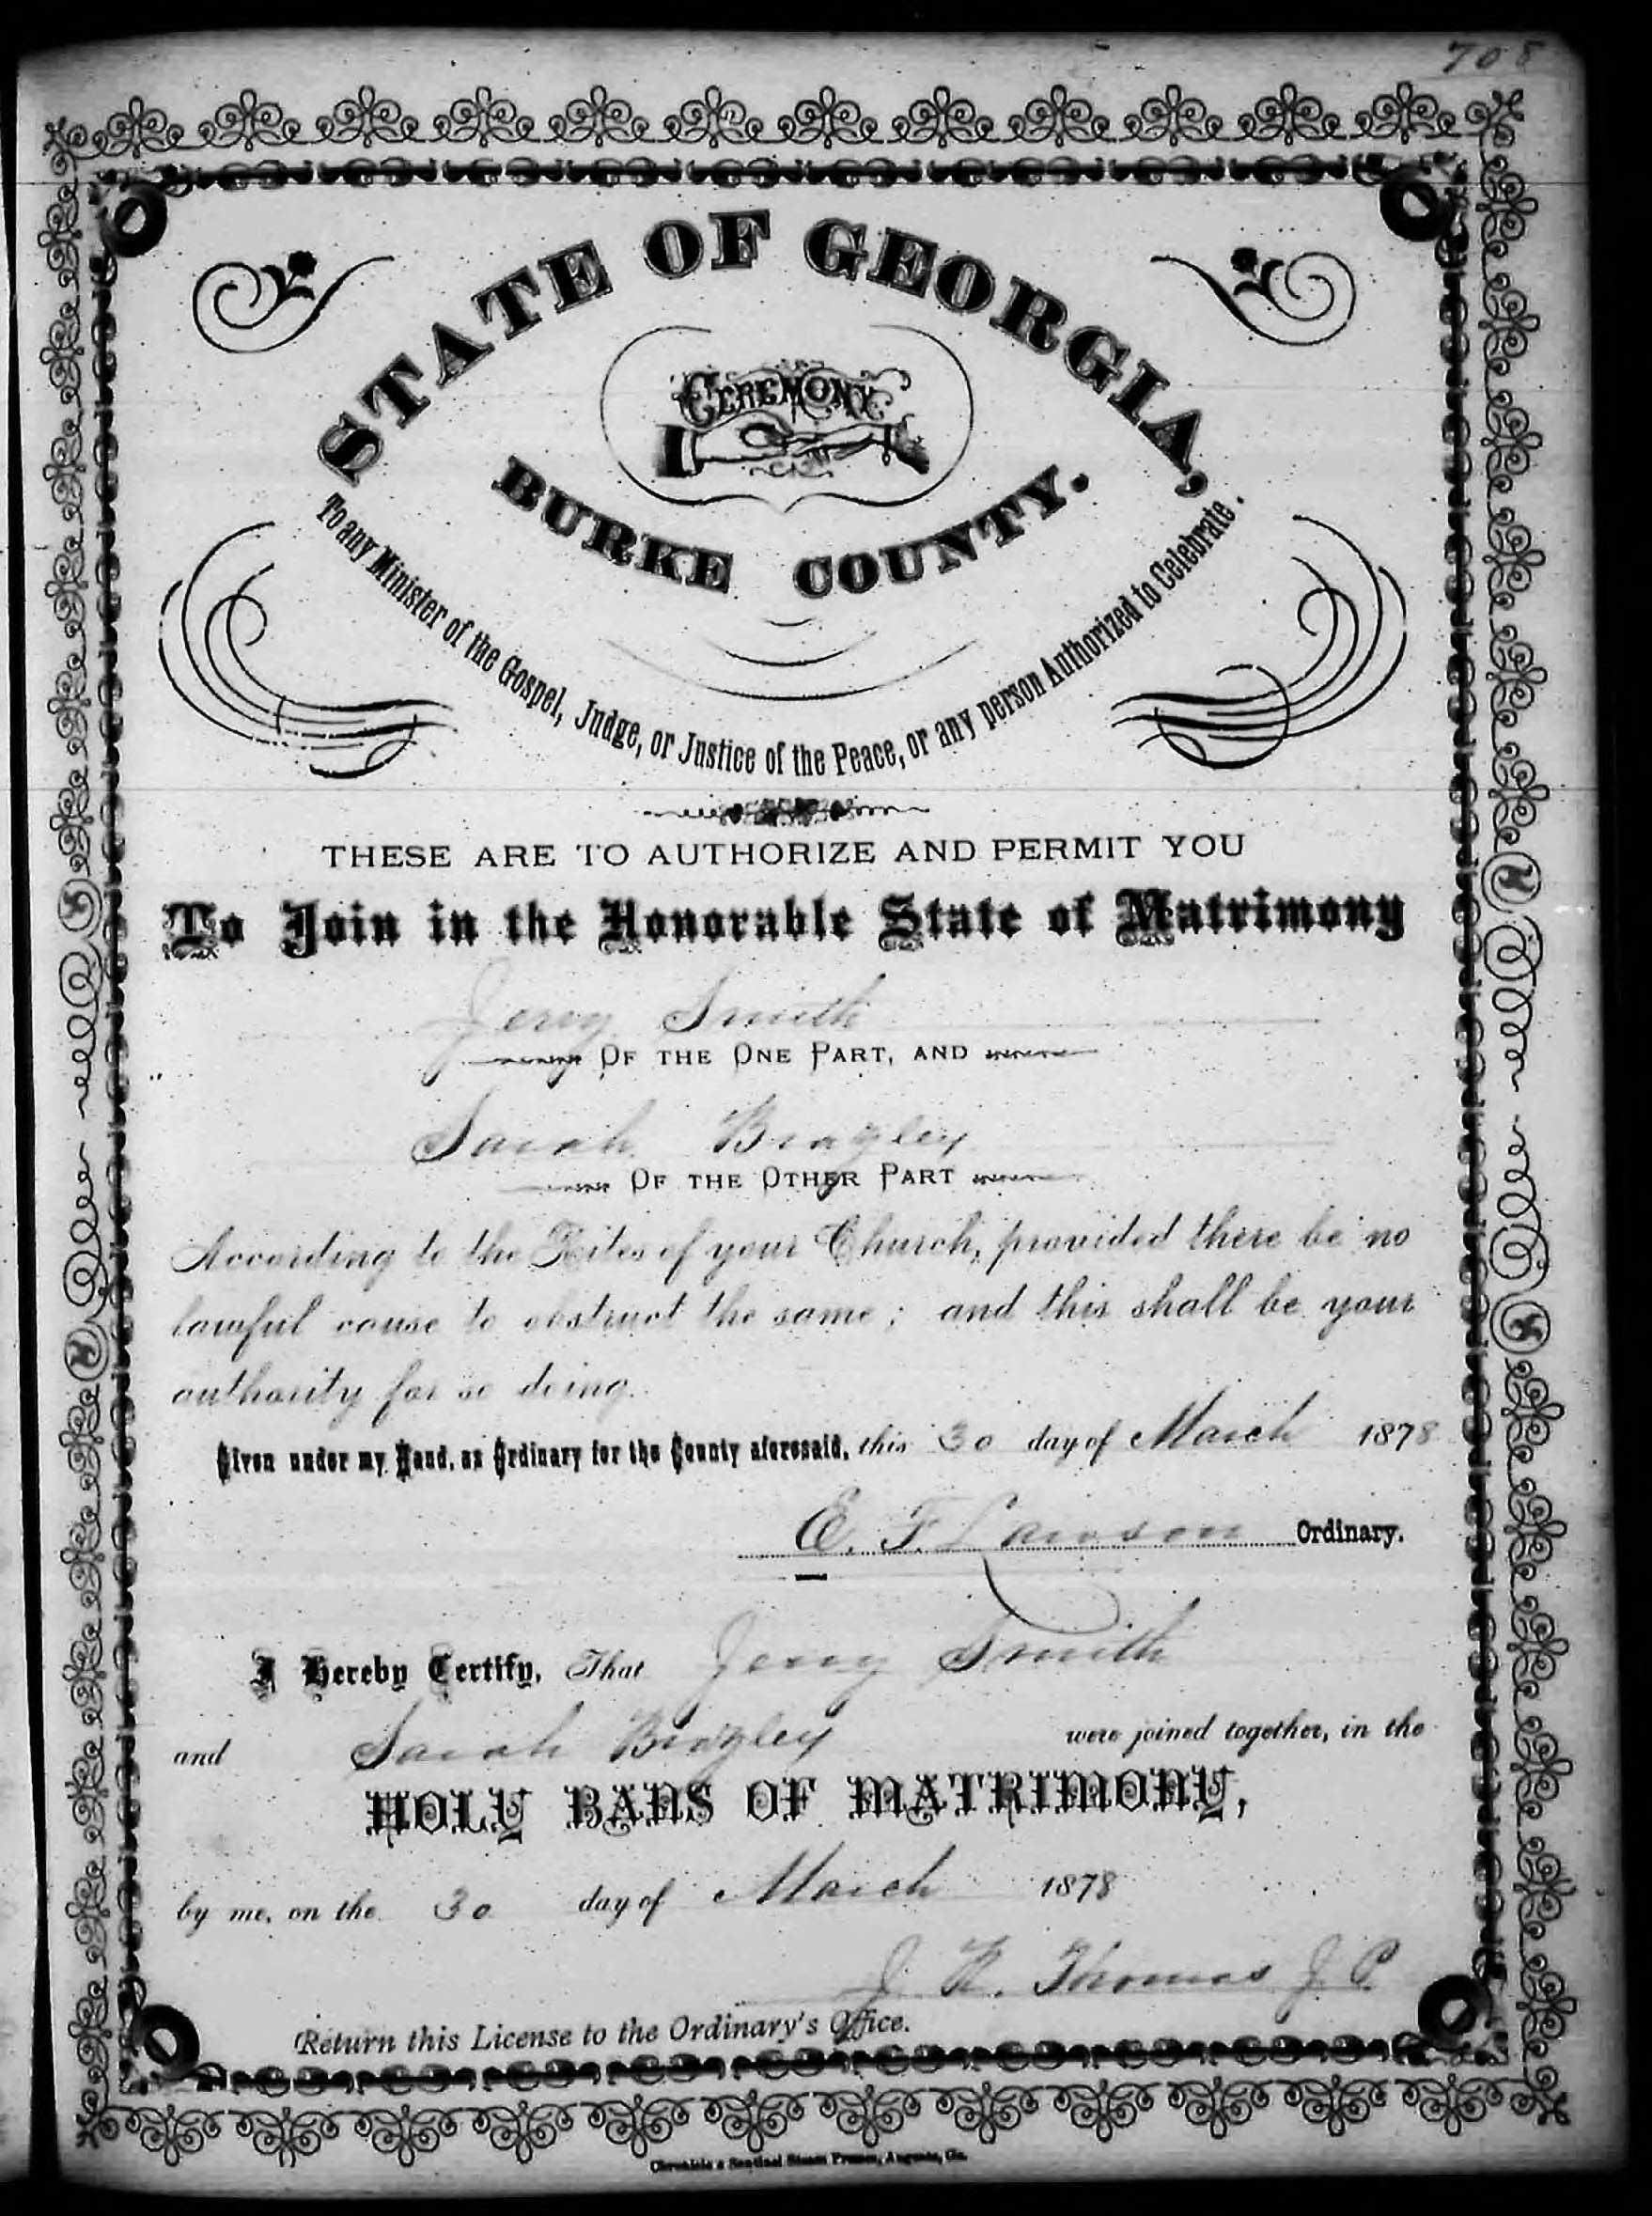 708
STATE OF GEORGIA,
CEREMONY
BURKE COUNTY.
To any Minister of the Gospel, Judge, or Justice of the Peace, or any person Authorized to Celebrate.
THESE ARE TO AUTHORIZE AND PERMIT YOU
To Join in the Honorable State of Matrimony
Jerry Smith
OF THE ONE PART, AND
Sarah Bragley
OF THE OTHER PART
According to the Rites of your Church, provided there be no
lawful cause to obstruct the same; and this shall be your
authority for so doing.
Given under my Hand, as Ordinary for the County aforesaid, this 30 day of March 1878
E. F. Lawson Ordinary.
I Hereby Certify, That Jerry Smith
and Sarah Bragley were joined together, in the
HOLY BANS OF MATRIMONY,
by me, on the 30 day of March 1878
J. Thomas J. P.
Return this License to the Ordinary's Office.
Chronicle & Sentinel Steam Presses, Augusta, Ga.